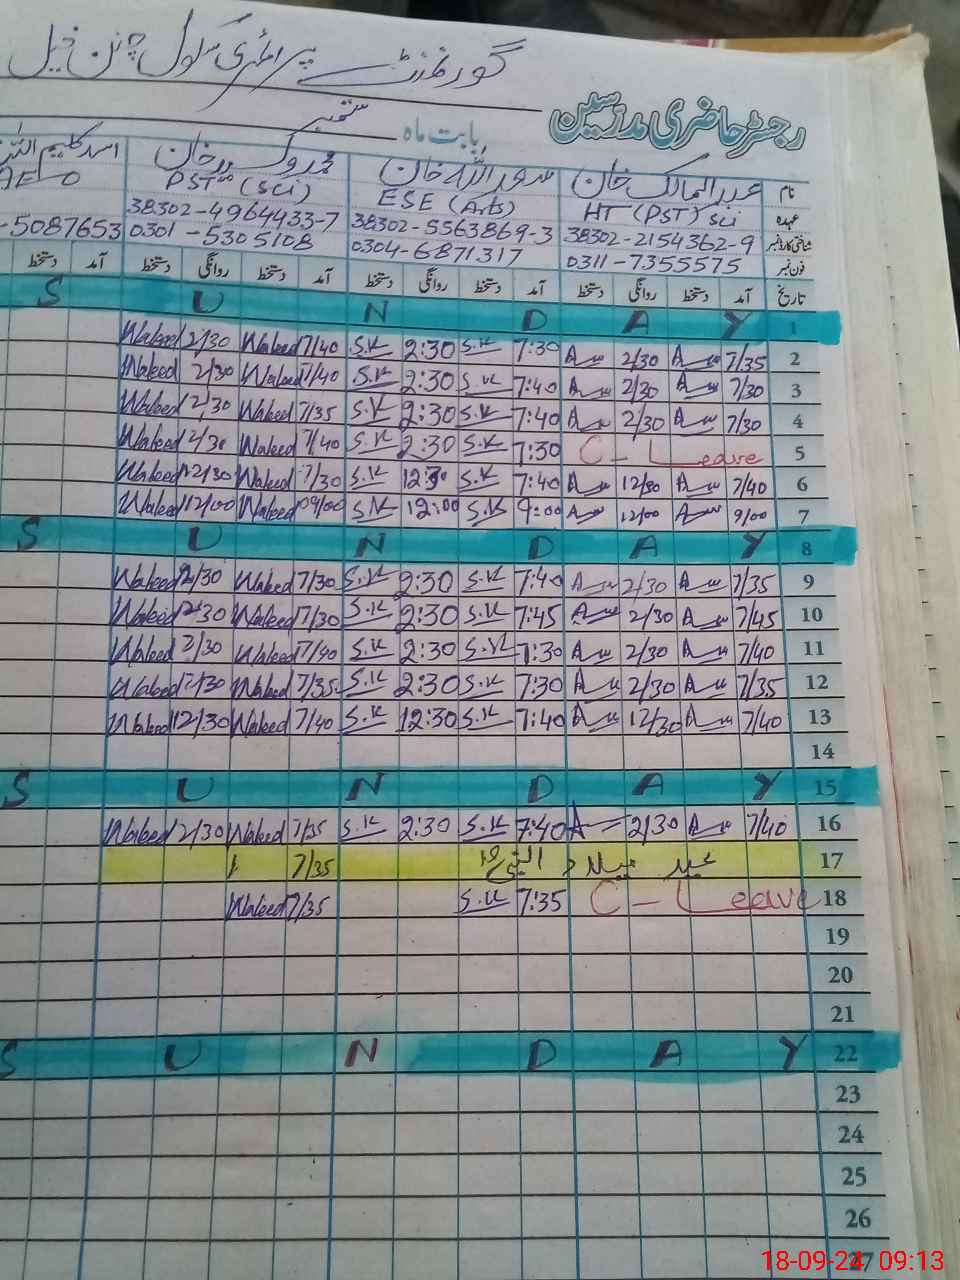 گورنمنٹ پرائمری سکول چنن خیل
رجسٹر حاضری مدرسین
بابت ماہ ستمبر
نام عبدالمالک خان سعد اللہ خان
عہدہ HT (PST) Sci ESE (Arts) PST (Sci) AEO
شناختی کارڈ نمبر 38302-2154362-9 38302-5563869-3 38302-4964433-7
فون نمبر 0311-7355575 0304-6871317 0301-5305108 -5087653
تاریخ آمد دستخط روانگی دستخط آمد دستخط روانگی دستخط آمد دستخط روانگی دستخط آمد دستخط
S U N D A Y 1
Waleed 2/30 Waleed 7/40 S.K 2:30 S.K 7:30 2/30 7/35 2
Waleed 2/30 Waleed 7/40 S.K 2:30 S.K 7:40 2/30 7/30 3
Waleed 2/30 Waleed 7/35 S.K 2:30 S.K 7:40 2/30 7/30 4
Waleed 2/30 Waleed 7/40 S.K 2:30 S.K 7:30 C - Leave 5
Waleed 12/30 Waleed 7/30 S.K 12:30 S.K 7:40 12/30 7/40 6
Waleed 12/00 Waleed 09/00 S.K 12:00 S.K 9:00 12/00 9/00 7
S U N D A Y 8
Waleed 2/30 Waleed 7/30 S.K 2:30 S.K 7:40 2/30 7/35 9
Waleed 2/30 Waleed 7/30 S.K 2:30 S.K 7:45 2/30 7/45 10
Waleed 2/30 Waleed 7/40 S.K 2:30 S.K 7:30 2/30 7/40 11
Waleed 2/30 Waleed 7/35 S.K 2:30 S.K 7:30 2/30 7/35 12
Waleed 12/30 Waleed 7/40 S.K 12:30 S.K 7:40 12/30 7/40 13
14
S U N D A Y 15
Waleed 2/30 Waleed 7/35 S.K 2:30 S.K 7:40 2/30 7/40 16
7/35 عید میلاد النبی 17
Waleed 7/35 S.K 7:35 C - Leave 18
19
20
21
S U N D A Y 22
23
24
25
26
27
18-09-24 09:13